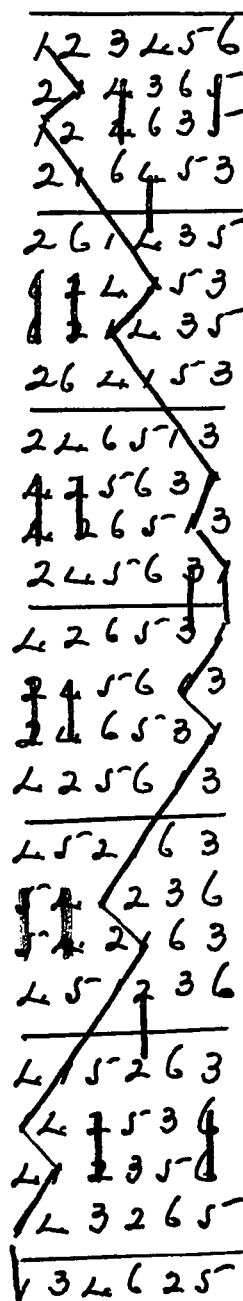 1 2 3 4 5 6
2 1 4 3 6 5
1 2 4 6 3 5
2 1 6 4 5 3
2 6 1 4 3 5
6 2 4 1 5 3
6 2 1 4 3 5
2 6 4 1 5 3
2 4 6 5 1 3
4 2 5 6 3 1
4 2 6 5 1 3
2 4 5 6 3 1
4 2 6 5 3 1
2 4 5 6 1 3
2 4 6 5 3 1
4 2 5 6 1 3
4 5 2 1 6 3
5 4 1 2 3 6
5 4 2 1 6 3
4 5 1 2 3 6
4 1 5 2 6 3
1 4 2 5 3 6
4 1 2 3 5 6
1 4 3 2 6 5
1 3 4 6 2 5